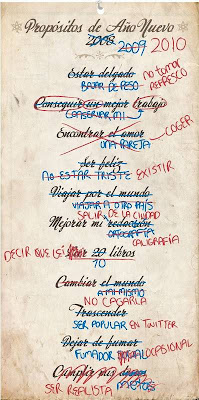 Propósitos de Año Nuevo
2008 2009 2010
Estar delgado no tomar
BAJAR DE PESO REFRESCO
Conseguir un mejor trabajo
CONSERVAR MI
Encontrar el amor COGER
UNA PAREJA
Ser feliz
NO ESTAR TRISTE EXISTIR
Viajar por el mundo
VIAJAR A OTRO PAÍS
SALIR DE LA CIUDAD
Mejorar mi redacción
ORTOGRAFÍA
CALIGRAFÍA
DECIR QUE LEÍ 20 libros
10
Cambiar el mundo
A MI MISMO
NO CAGARLA
Trascender
SER POPULAR EN TWITTER
Dejar de fumar
FUMADOR OCASIONAL
Cumplir mis
SER REALISTA METAS